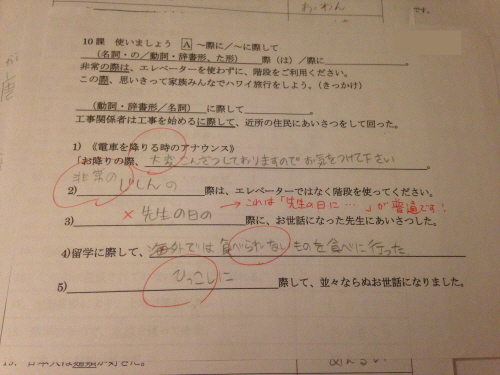 わん
です。
10課　使いましょう　A　～際に／～に際して
（名詞・の／動詞・辞書形、た形）　際（は）／際に
非常の際は、エレベーターを使わずに、階段をご利用ください。
この際、思いきって家族みんなでハワイ旅行をしよう。（きっかけ）
（動詞・辞書形／名詞）　に際して
工事関係者は工事を始めるに際して、近所の住民にあいさつをして回った。
1）《電車を降りる時のアナウンス》
「お降りの際、大変こんざつしておりますのでお気をつけて下さい
非常の
2）じしんの　際は、エレベーターではなく階段を使ってください。
→これは「先生の日に…」が普通です！
3）×先生の日の　際に、お世話になった先生にあいさつした。
4）留学に際して、海外では食べられないものを食べに行った。
5）ひっこしに　際して、並々ならぬお世話になりました。